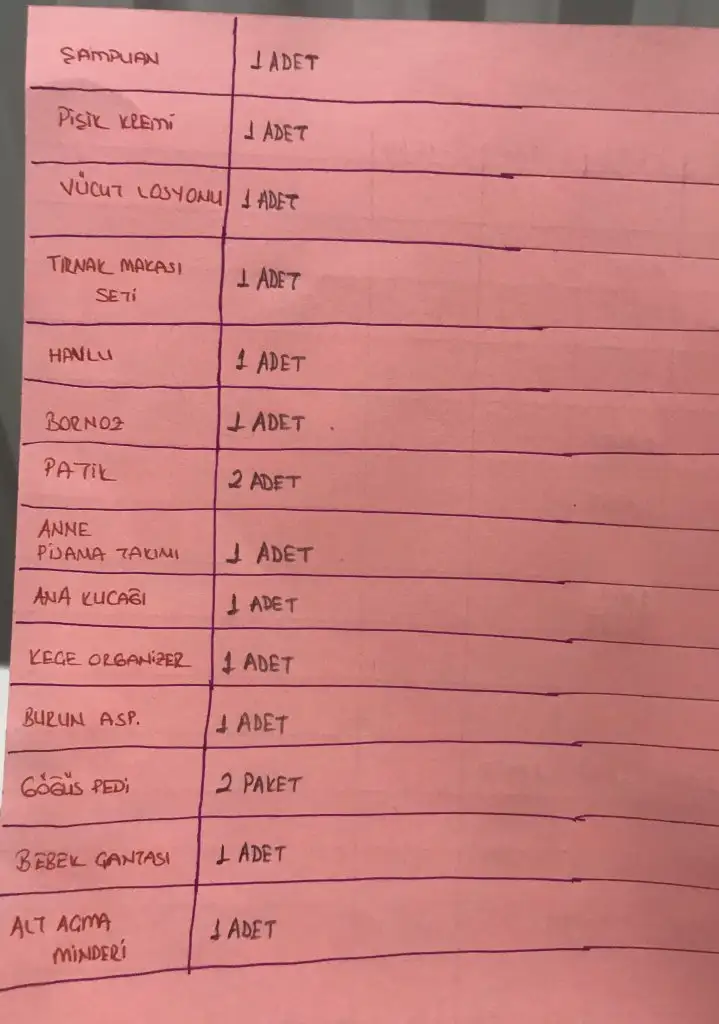 ŞAMPUAN 1 ADET
PİŞİK KREMİ 1 ADET
VÜCUT LOSYONU 1 ADET
TIRNAK MAKASI 1 ADET
SETİ
HAVLU 1 ADET
BORNOZ 1 ADET
PATİK 2 ADET
ANNE
PİJAMA TAKIMI 1 ADET
ANA KUCAĞI 1 ADET
KEÇE ORGANİZER 1 ADET
BURUN ASP. 1 ADET
GÖĞÜS PEDİ 2 PAKET
BEBEK ÇANTASI 1 ADET
ALT AÇMA 1 ADET
MİNDERİ